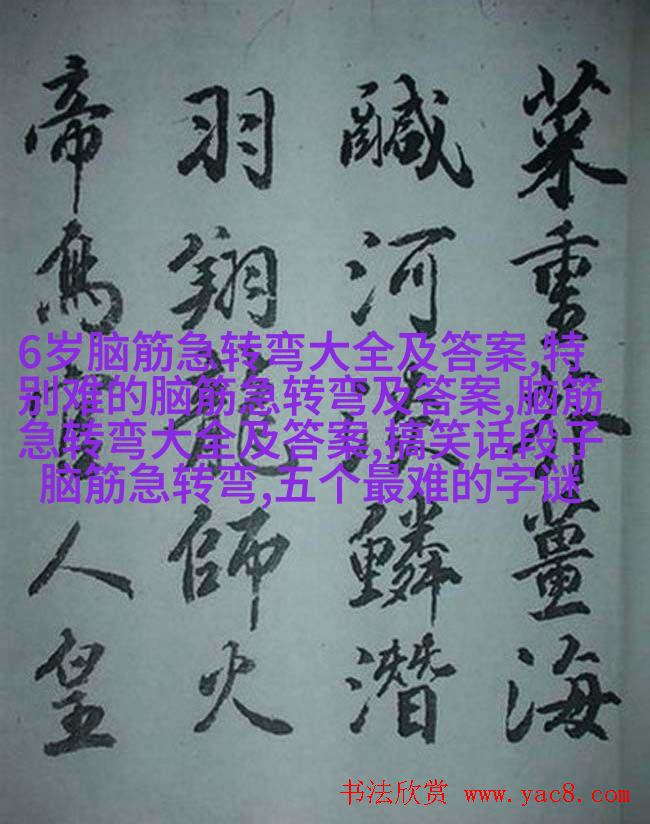 菜重芥薑海
鹹河淡鱗潛
羽翔龍師火
帝鳥官人皇
6岁脑筋急转弯大全及答案,特
别难的脑筋急转弯及答案,脑筋
急转弯大全及答案,搞笑话段子
脑筋急转弯,五个最难的字谜
书法欣赏 www.yac8.com